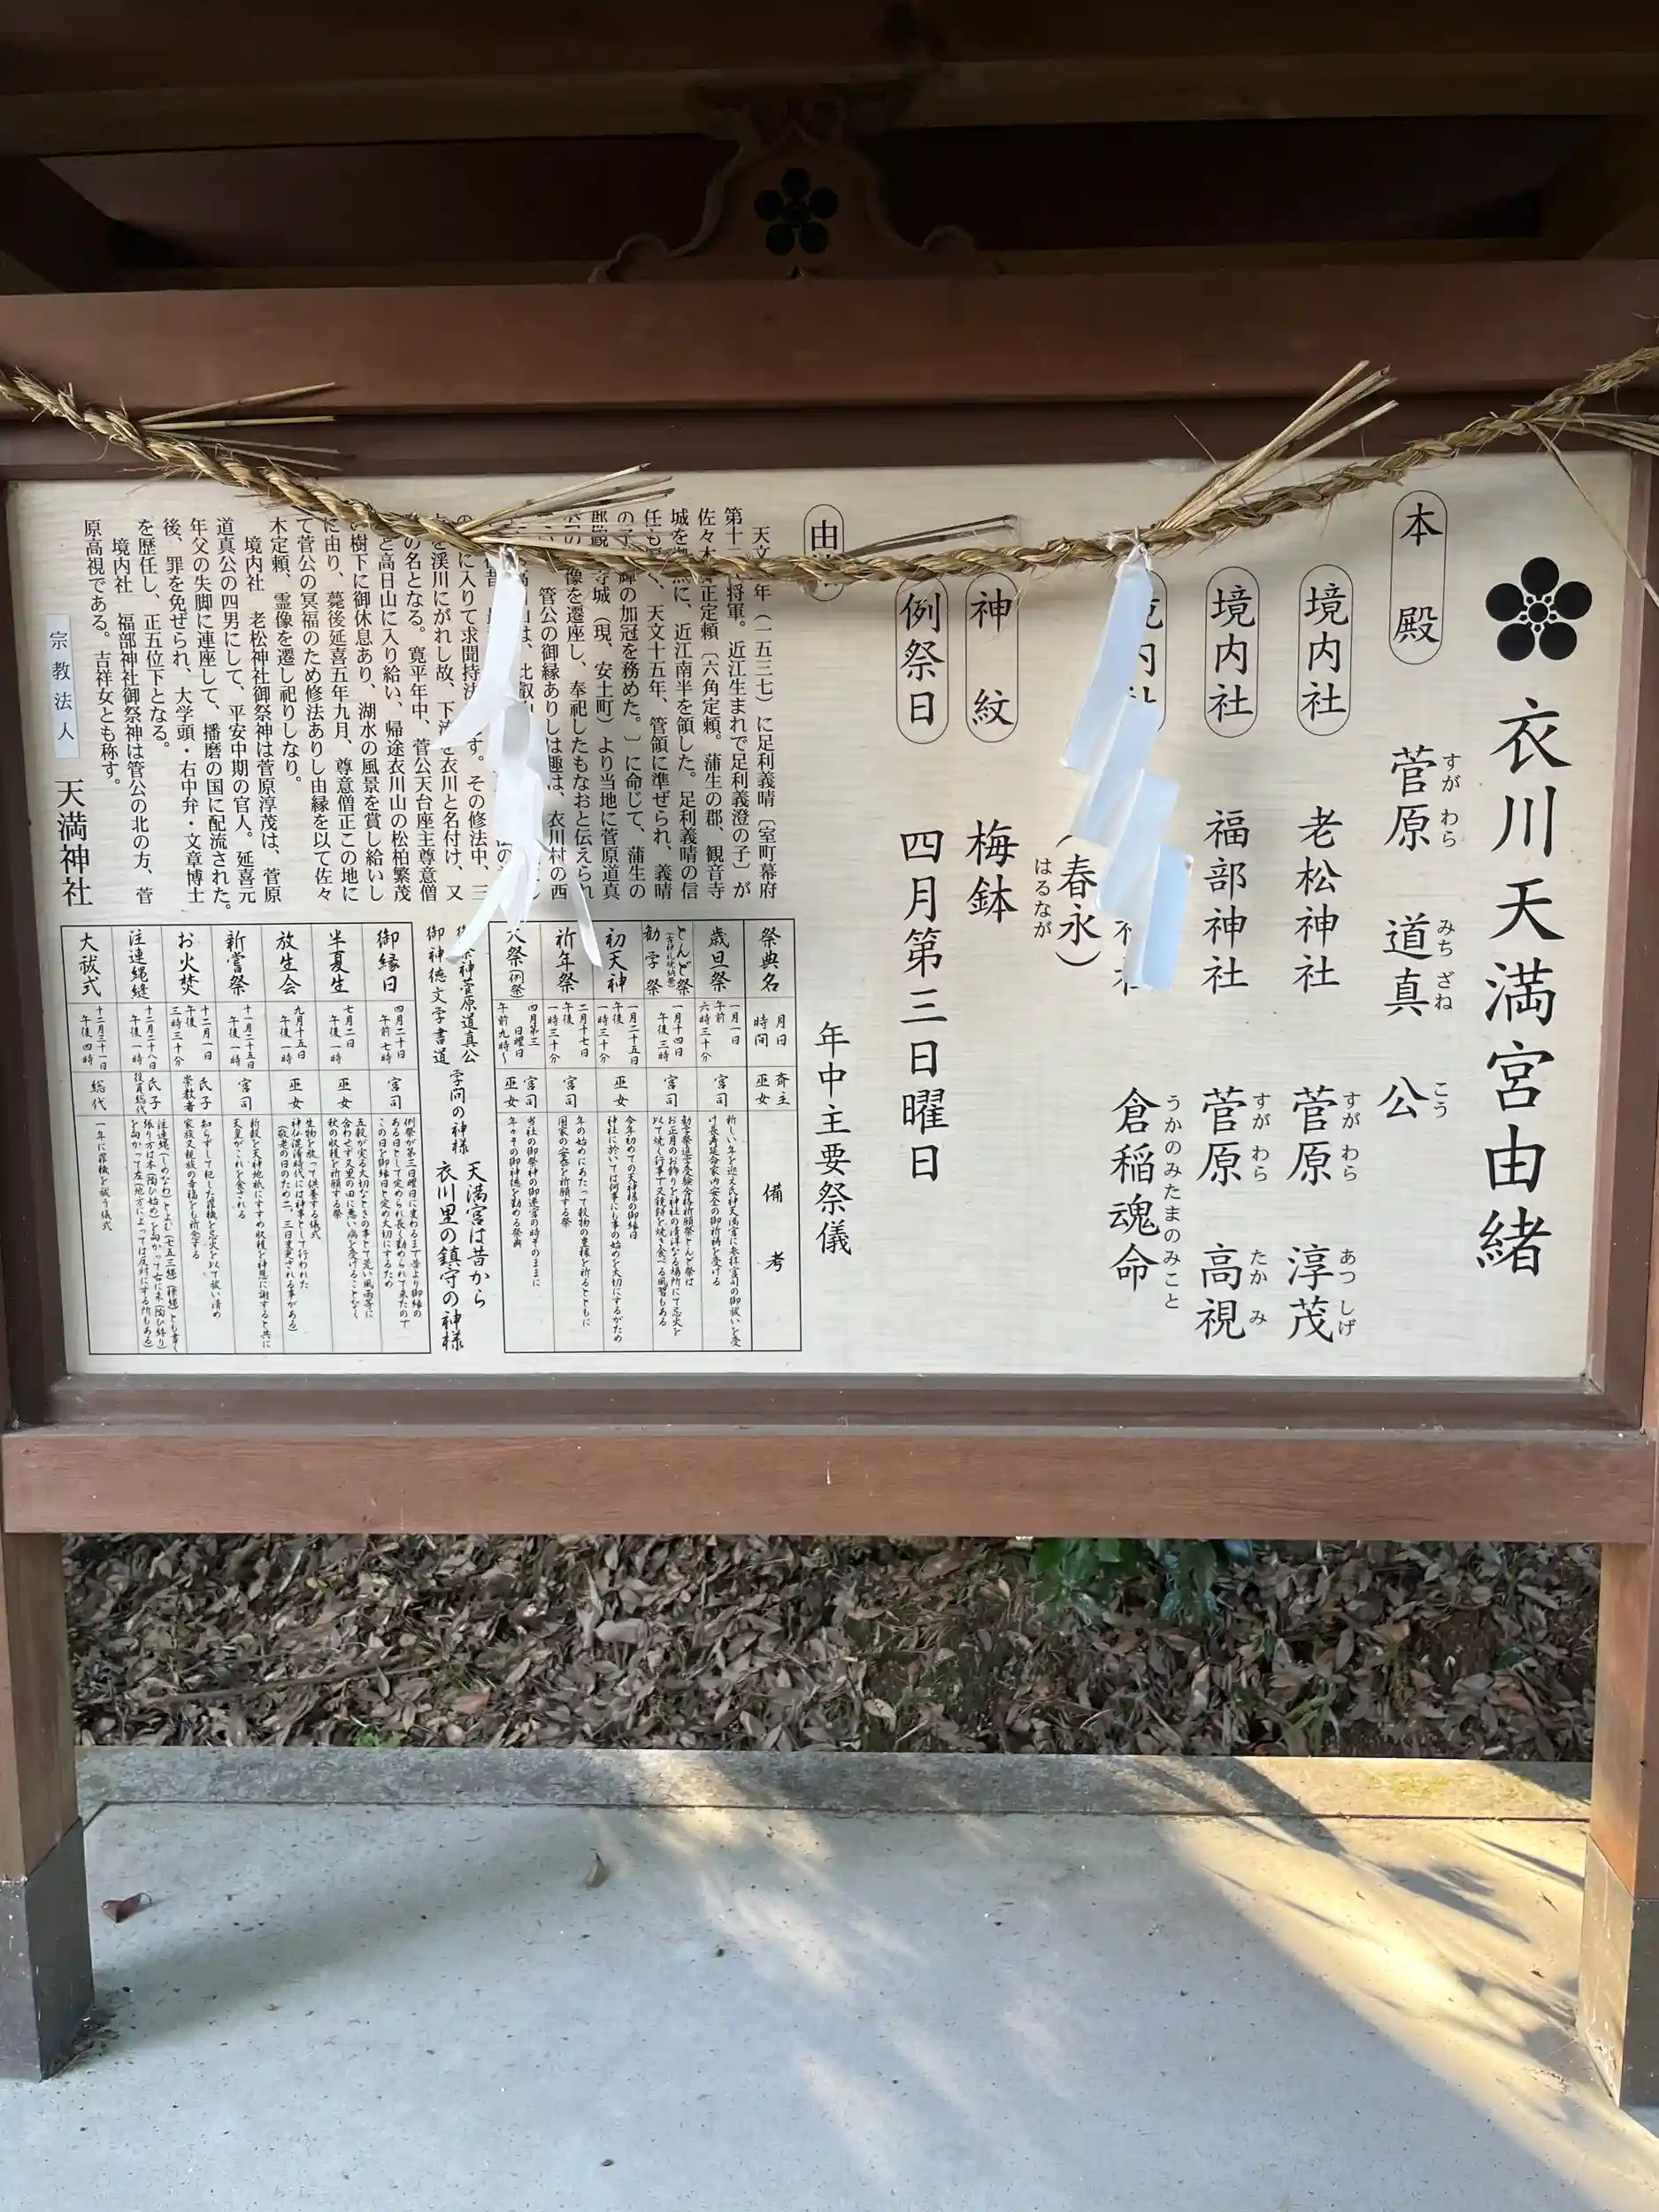 衣川天満宮由緒
本殿 菅原 道真 公
すが わら みち ざね こう
境内社 老松神社 菅原 淳茂
すが わら あつ しげ
境内社 福部神社 菅原 高視
すが わら たか み
内 倉稲魂命
うかのみたまのみこと
(春永)
はるなが
神紋 梅鉢
例祭日 四月第三日曜日
年中主要祭儀
由
天文 年(一五三七)に足利義晴〔室町幕府
第十 代将軍。近江生まれで足利義澄の子〕が
佐々木 正定頼〔六角定頼。蒲生の郡、観音寺
城を に、近江南半を領した。足利義晴の信
任も く、天文十五年、管領に準ぜられ、義晴
の子 輝の加冠を務めた。〕に命じて、蒲生の
寺城(現、安土町)より当地に菅原道真
像を遷座し、奉祀したもなおと伝えられ
管公の御縁ありしは趣は、衣川村の西
は、比叡
に入りて求聞持法 す。その修法中、三
を渓川にがれし故、下流を衣川と名付け、又
の名となる。寛平年中、菅公天台座主尊意僧
と高日山に入り給い、帰途衣川山の松柏繁茂
い樹下に御休息あり、湖水の風景を賞し給いし
に由り、薨後延喜五年九月、尊意僧正この地に
て菅公の冥福のため修法ありし由縁を以て佐々
木定頼、霊像を遷し祀りしなり。
境内社 老松神社御祭神は菅原淳茂は、菅原
道真公の四男にして、平安中期の官人。延喜元
年父の失脚に連座して、播磨の国に配流された。
後、罪を免ぜられ、大学頭・右中弁・文章博士
を歴任し、正五位下となる。
境内社 福部神社御祭神は管公の北の方、菅
原高視である。吉祥女とも称す。
宗教法人 天満神社
祭典名 月日 時間 斎主 巫女 備考
歳旦祭 一月一日 午前 六時三十分 宮司 新しい年を迎え氏神天満宮に参拝宮司の御祓いを受
け長寿延命家内安全の御祈祷を受ける
とんど祭 勧学祭 一月十四日 午後三時 宮司 勧学祭進学受験合格祈願祭とんど祭は
お正月のお飾りを神社の清浄なる場所にて忌火を
以て焼く行事で又鏡餅を焼き食べる風習もある
初天神 一月二十五日 午後 一時三十分 巫女 今年初めての天神様の御縁日
神社に於いては何事にも事の始めを大切にするがため
祈年祭 二月十七日 午後 一時三十分 宮司 年の始めにあたって穀物の豊穣を祈るとともに
国家の安泰を祈願する祭
大祭(例祭) 四月第三日曜日 午前九時~ 宮司 巫女 当社の御祭神の御遷宮の時そのままに
年々その御神徳を勧める祭典
祭神菅原道真公 学問の神様 天満宮は昔から
御神徳文学書道 衣川里の鎮守の神様
御縁日 四月二十日 午前七時 宮司 例祭が第三日曜日に変わるまで昔より御縁の
ある日として定められ長く勤められて来たので
この日を御縁日と定め大切にするため
半夏生 七月二日 午後一時 巫女 五穀が実る大切なときの事とて荒い風雨等に
合わせず又里の田に悪い病を受けることなく
秋の収穫を祈願する祭
放生会 九月十五日 午後一時 巫女 生物を放って供養する儀式
神仏混淆時代には神事として行われた
(敬老の日のため二、三日変更される事がある)
新嘗祭 十一月二十五日 午後一時 宮司 新穀を天神地祇にすすめ収穫を神恩に謝すると共に
天皇がこれを食される
お火焚 十二月一日 午後 三時三十分 氏子 崇敬者 知らずして犯した罪穢を忌火を以て祓い清め
家族又親族の幸福をも祈念する
注連縄縫 十二月二十八日 午後一時 氏子 役員総代 注連縄(しめなわ)とよむ(七五三縄)(標縄)とも書く
張り方は本(綯ひ始め)を向かって右に末(綯ひ終り)
を向かって左(地方によっては反対にする所もある)
大祓式 十二月三十一日 午後四時 総代 一年に罪穢を祓う儀式